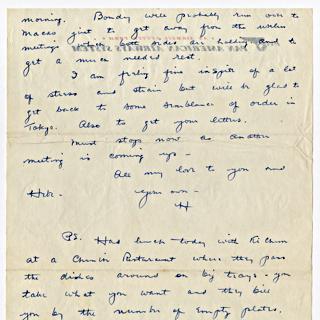 morning. Bondy will probably run over to
Macao just to get away from the endless
meetings which both sides are holding and to
get a much needed rest.
I am feeling fine inspite of a lot
of stress and strain but will be glad to
get back to some semblance of order in
Tokyo. Also to get your letters.
Must stop now as another
meeting is coming up -
All my love to you and
your own -
H
PS. Had lunch today with Ki Chun
at a Chinese Restaurant where they pass
the dishes around on big trays - you
take what you want and they bill
you by the number of empty plates.